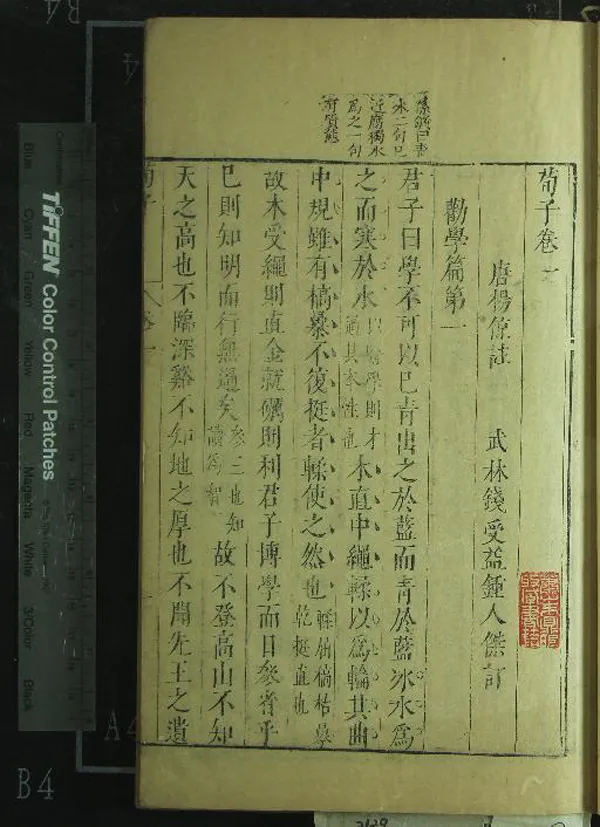 荀子卷一
唐楊倞註
武林錢受益鍾人傑訂
勸學篇第一
君子曰學不可以已青出之於藍而青於藍冰水為
之而寒於水以喻學則才過其本性也木直中繩輮以為輪其曲
中規雖有槁暴不復挺者輮使之然也輮屈槁枯暴乾挺直也
故木受繩則直金就礪則利君子博學而日參省乎
已則知明而行無過矣參三也知讀為智故不登高山不知
天之高也不臨深谿不知地之厚也不聞先王之遺
孫鑛曰青
冰二句已
近腐獨水
為之一句
有質態
荀子
卷一
TIFFEN Color Control Patches
Centimetres
Blue
Cyan
Green
Yellow
Red
Magenta
White
3/Color
Black
B4
A4
B4
A4